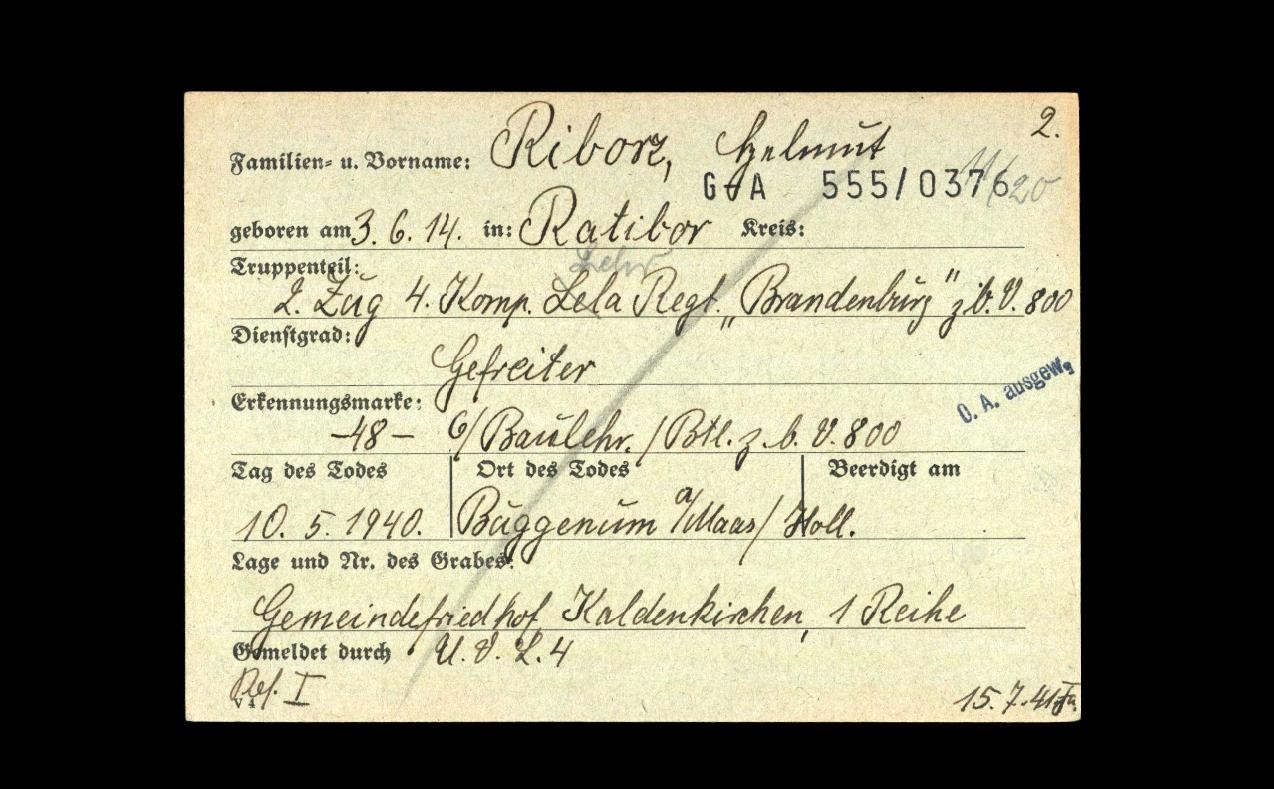 2.
Familien- u. Vorname: Riborz, Helmut
G-A 555/0376
geboren am 3. 6. 14. in: Ratibor Kreis:
Truppenteil: Lehr
2. Zug 4. Komp. Lela Regt. „Brandenburg" z.b.V. 800
Dienstgrad:
Gefreiter
O. A. ausgew.
Erkennungsmarke:
-48- 6/Baulehr./Btl. z. b. V. 800
Tag des Todes Ort des Todes Beerdigt am
10. 5. 1940. Buggenum a/Maas/Holl.
Lage und Nr. des Grabes:
Gemeindefriedhof Kaldenkirchen, 1 Reihe
Gemeldet durch U. V. L. 4
Ref. I
V 4
15.7.41